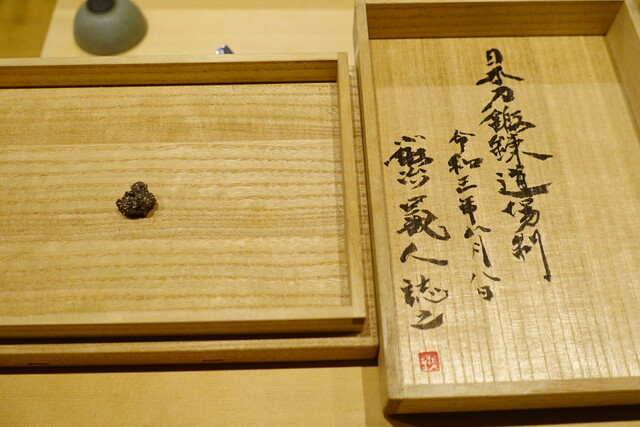 日本刀鍛錬道場別
令和三年八月八日
鍛冶蔵人誌之